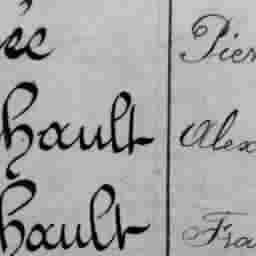 ée Pier
hault Alex
hault Fra